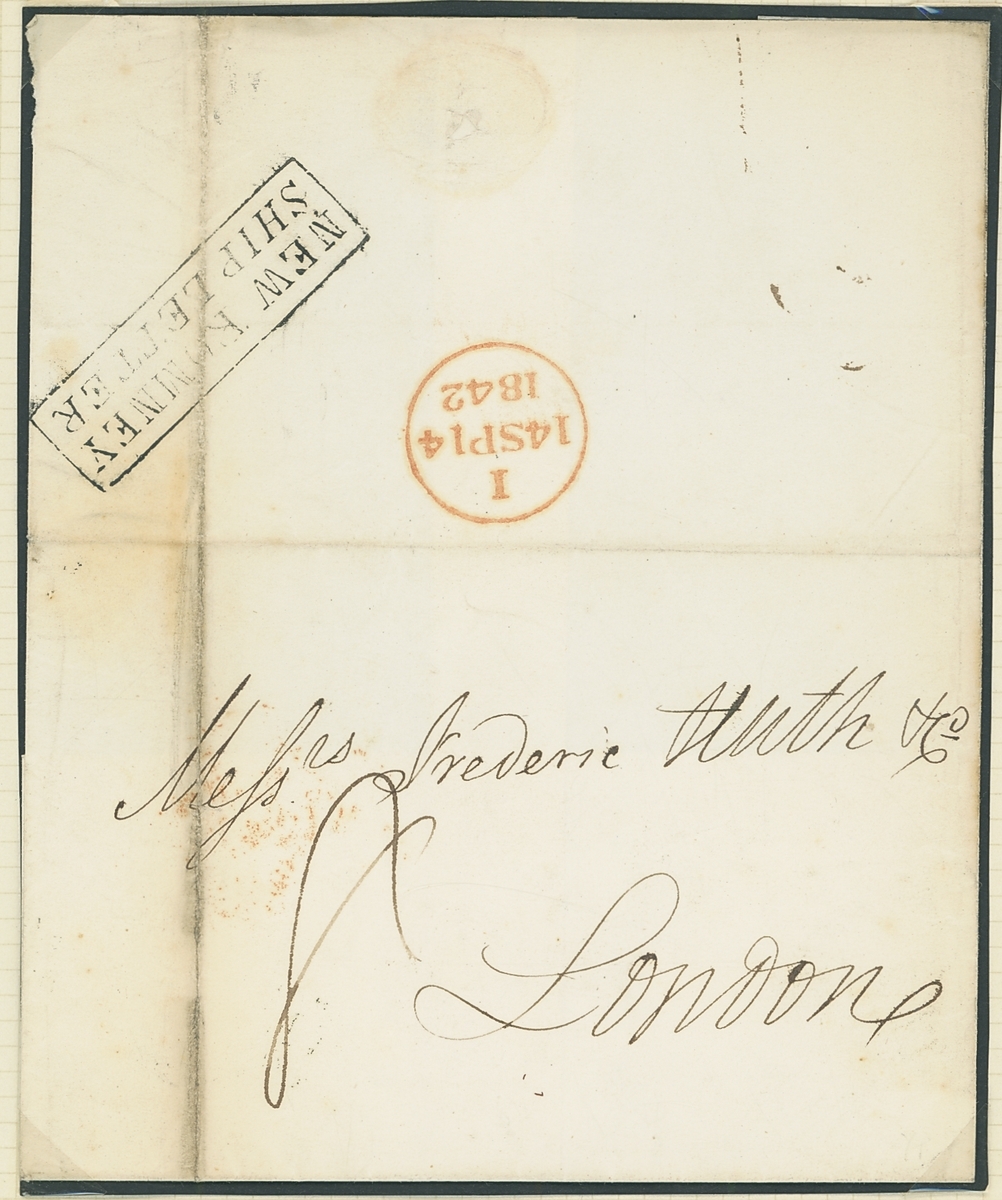 NEW ROMNEY
SHIP LETTER
I
14SP14
1842
Messrs Frederic Huth & Co
London
8